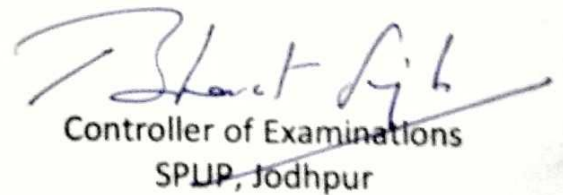 Bharat Singh
Controller of Examinations
SPUP, Jodhpur